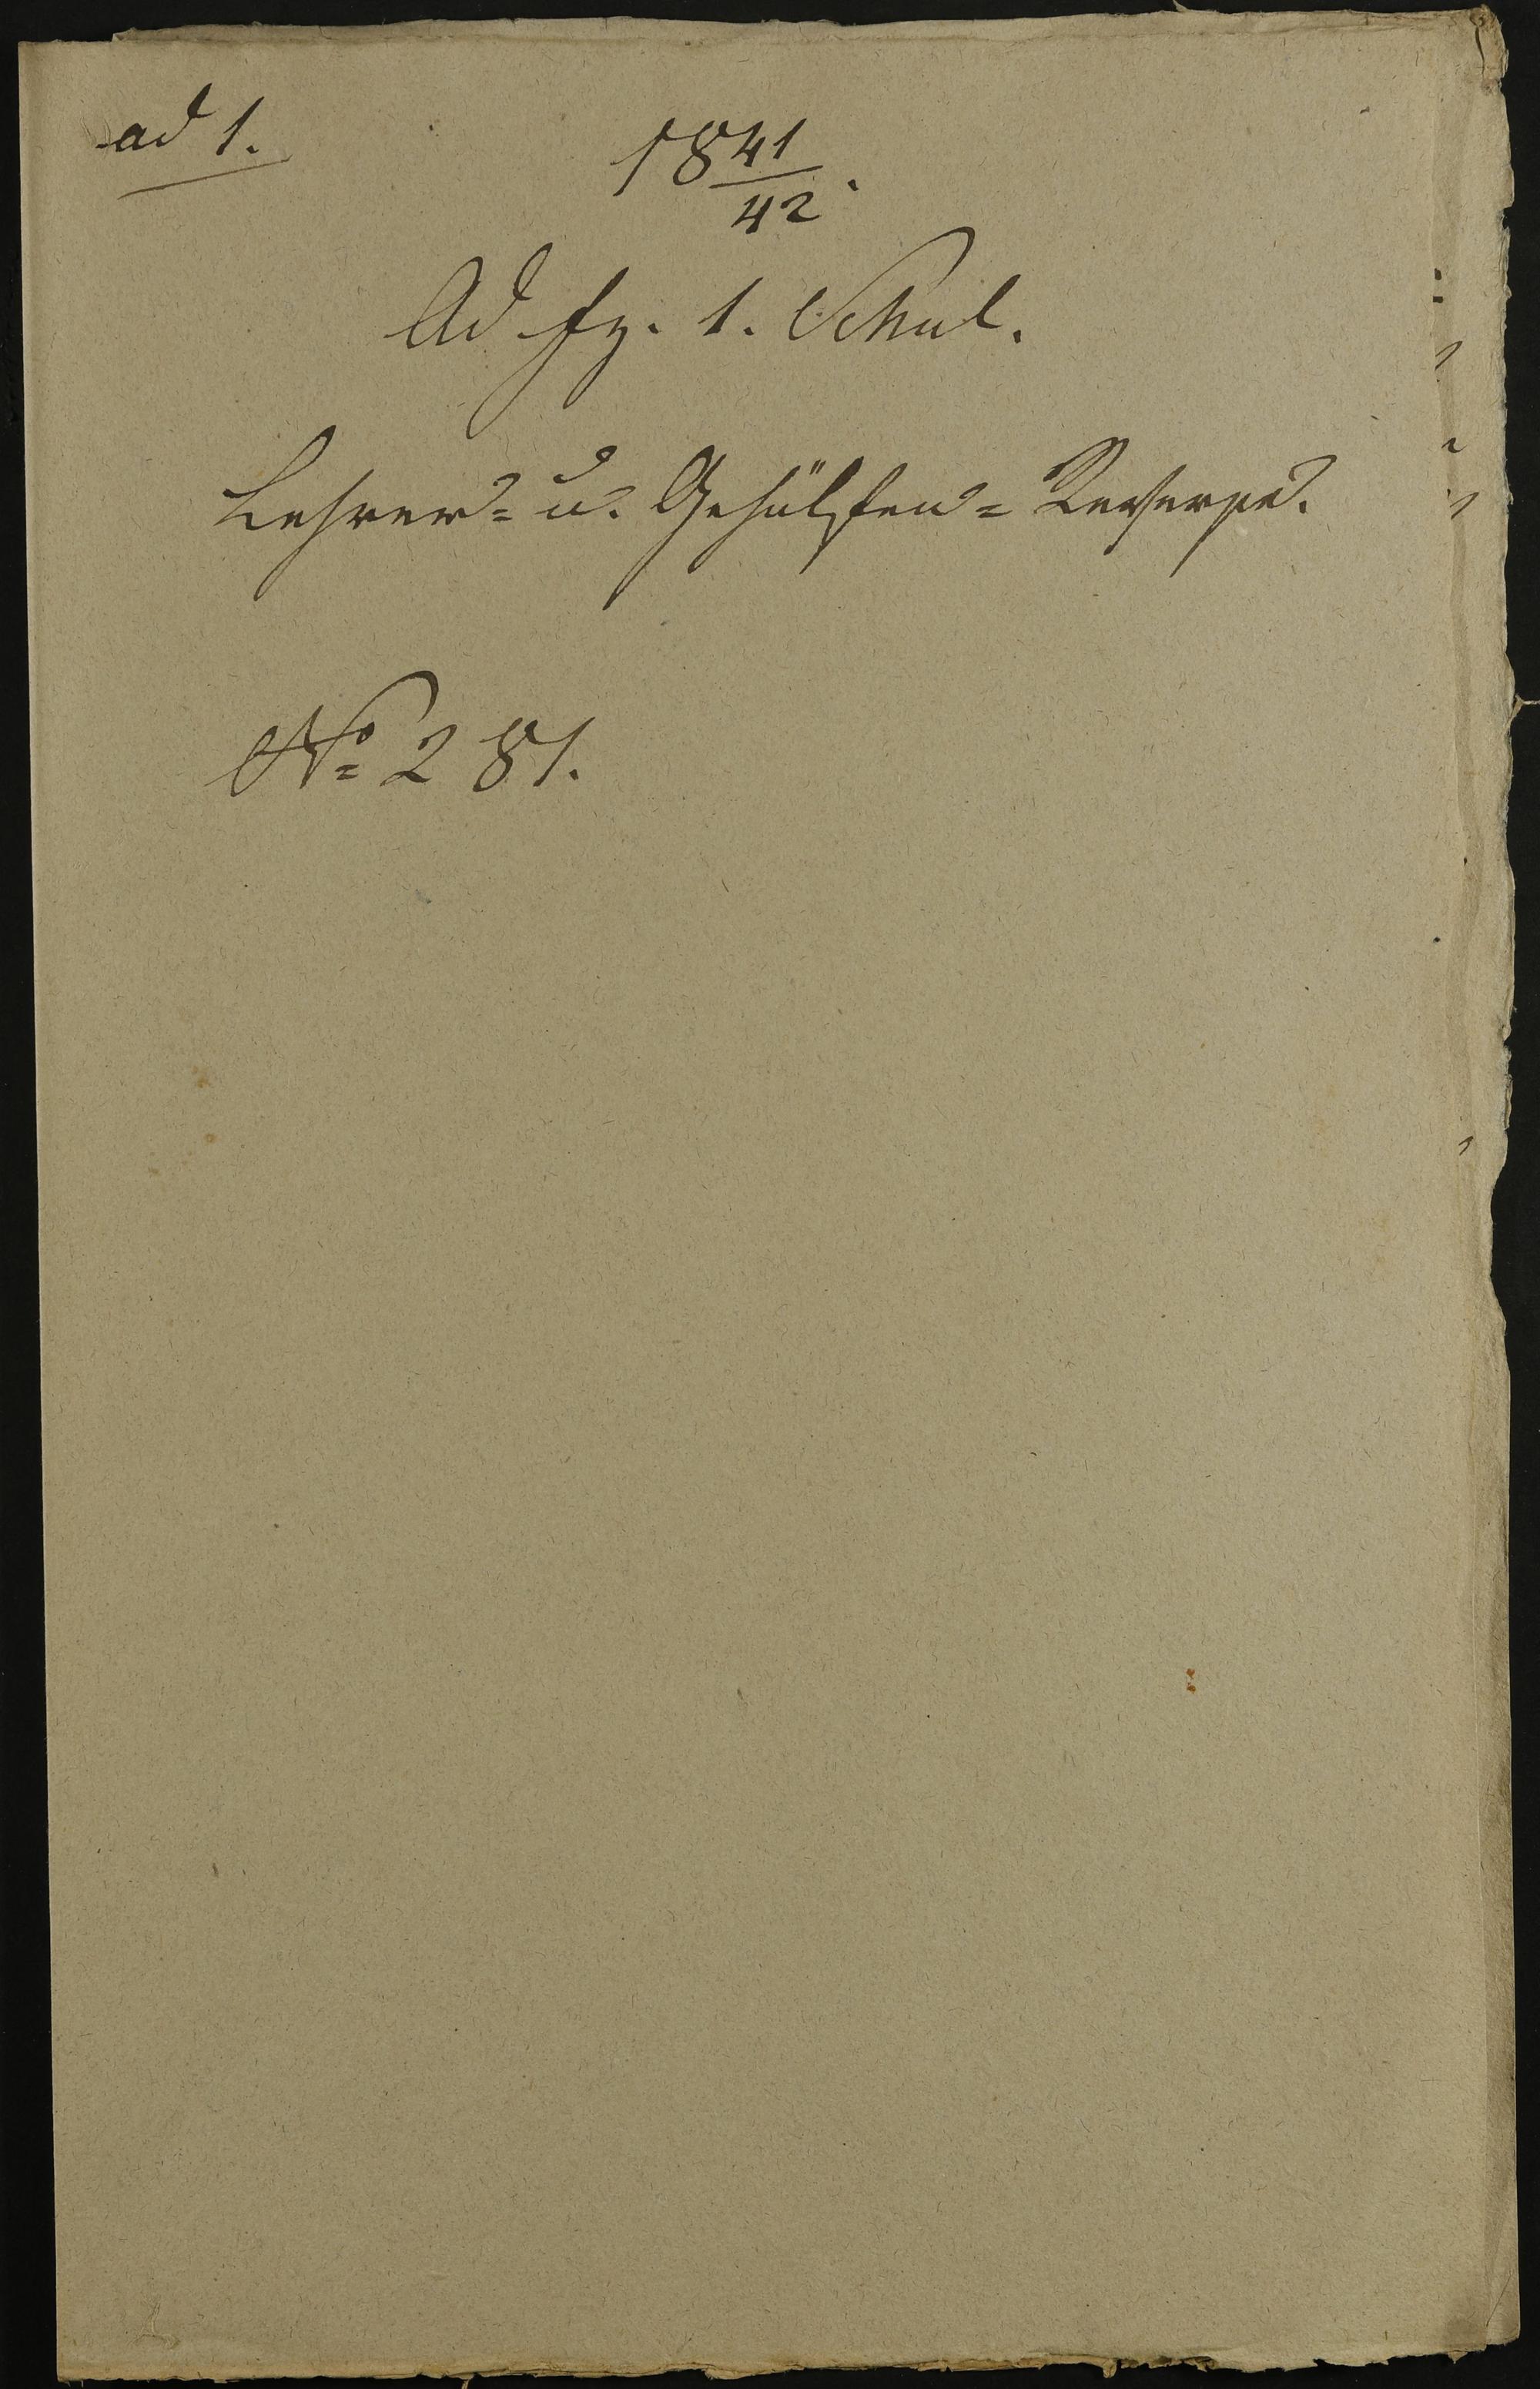 ad 1.
18 41/42.
Ad fz. 1. Schul.
Lehrer= u. Gehülfen=
No 281.